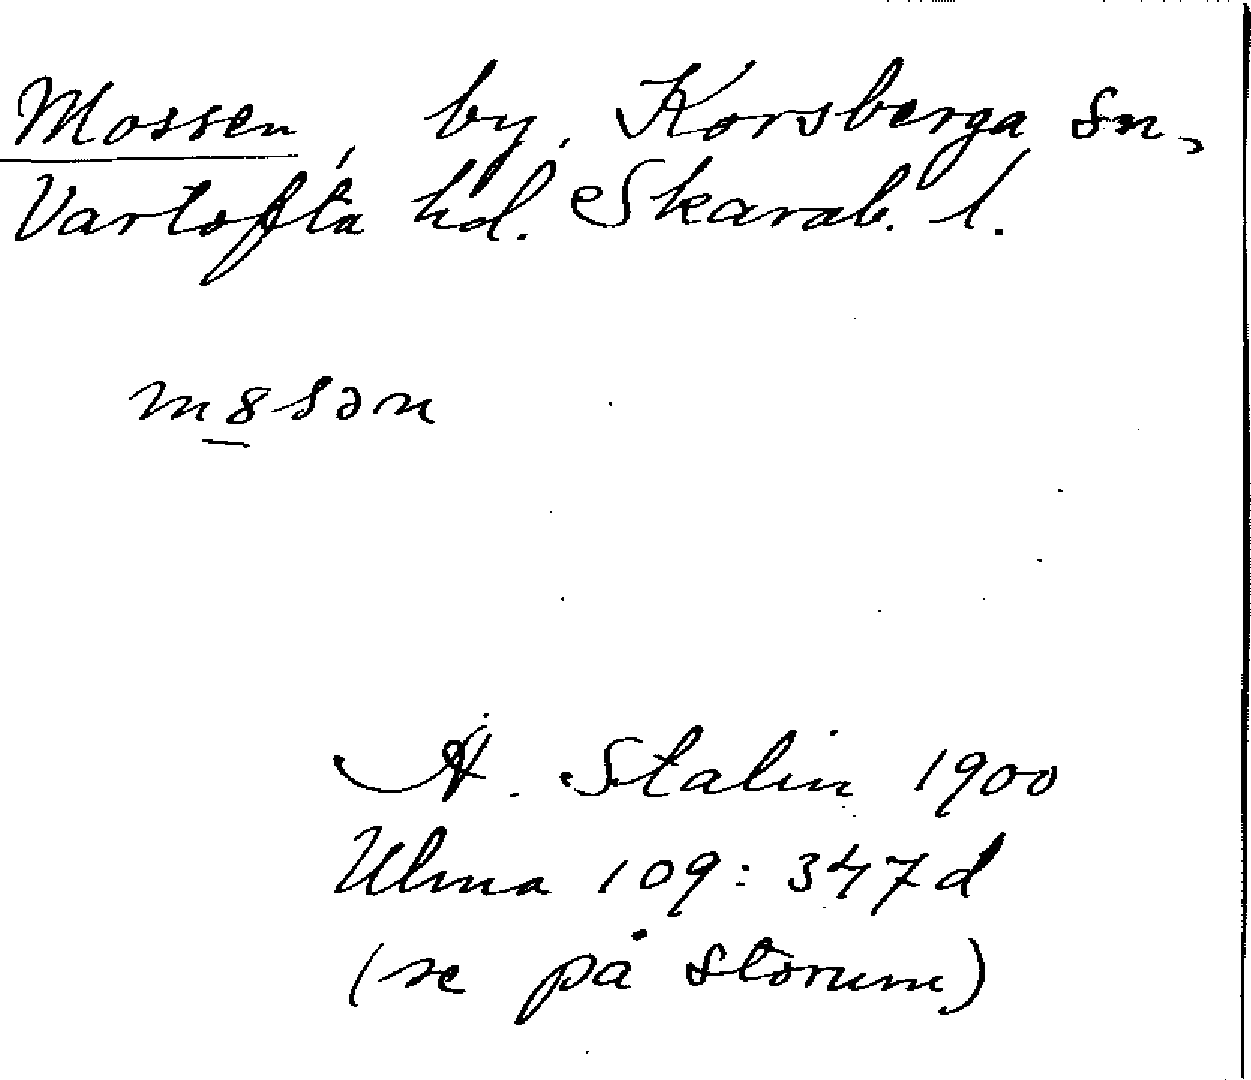 Mossen, by, Korsberga sn,
Vartofta hd. Skarab. l.
mɞsən
A. Stalin 1900
Ulma 109: 347 d
(se på Storum)